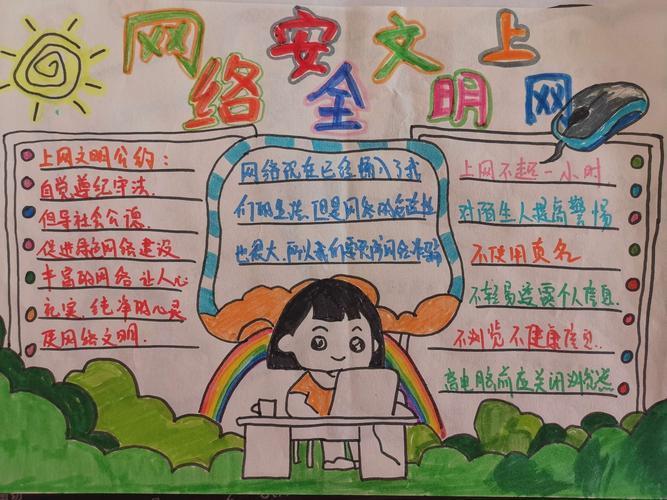 网络安全文明上网
上网文明公约:
自觉遵纪守法.
倡导社会公德.
促进绿色网络建设
丰富的网络 让人心
充实.纯净的心灵
使网络文明.
网络现在已经插入了我
们的生活.但是网络的危险性
也很大.所以我们要预防网络诈骗
上网不超一小时
对陌生人提高警惕
不使用真名
不轻易透露个人信息.
不浏览不健康信息.
离电脑前应关闭浏览器